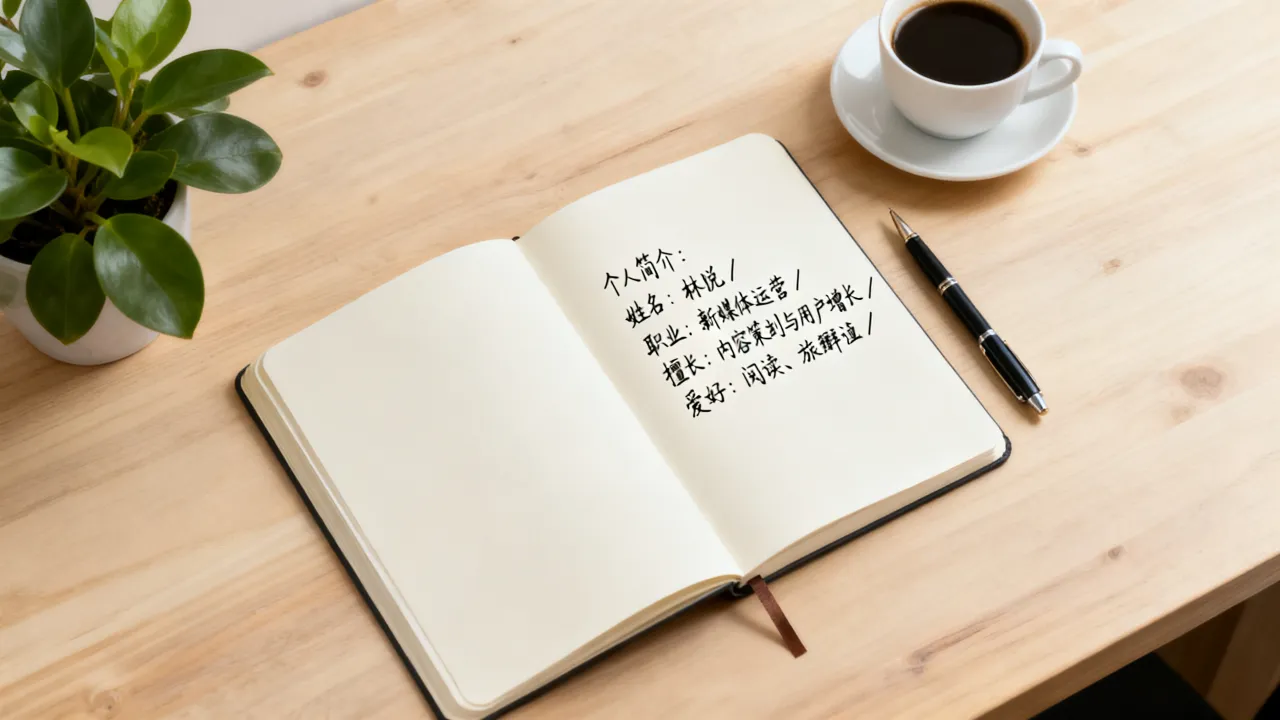 个人简介：
姓名：林悦 /
职业：新媒体运营 /
擅长：内容策划与用户增长 /
爱好：阅读、旅 /